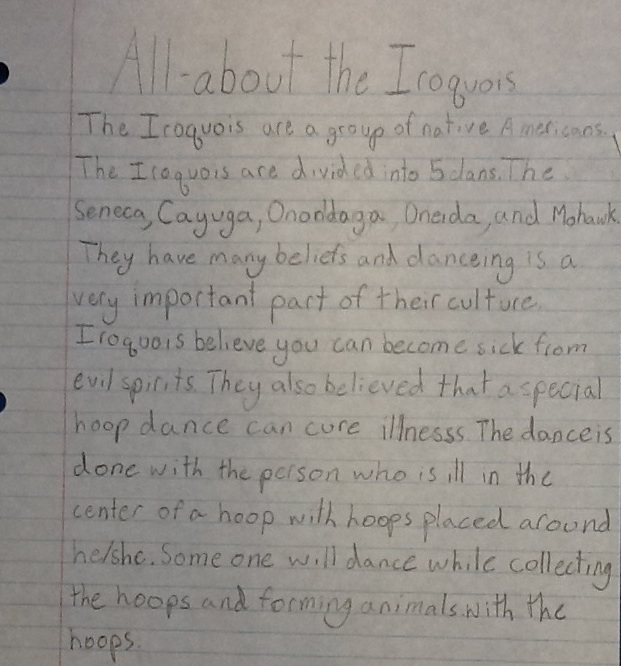 All-about the Iroquois
The Iroquois are a group of native Americans.
The Iroquois are divided into 5 clans. The
Seneca, Cayuga, Ononddaga, Oneida, and Mohawk.
They have many beliefs and danceing is a
very important part of their culture.
Iroquois believe you can become sick from
evil spirits. They also believed that a special
hoop dance can cure illnesss. The dance is
done with the person who is ill in the
center of a hoop with hoops placed around
he/she. Some one will dance while collecting
the hoops and forming animals with the
hoops.